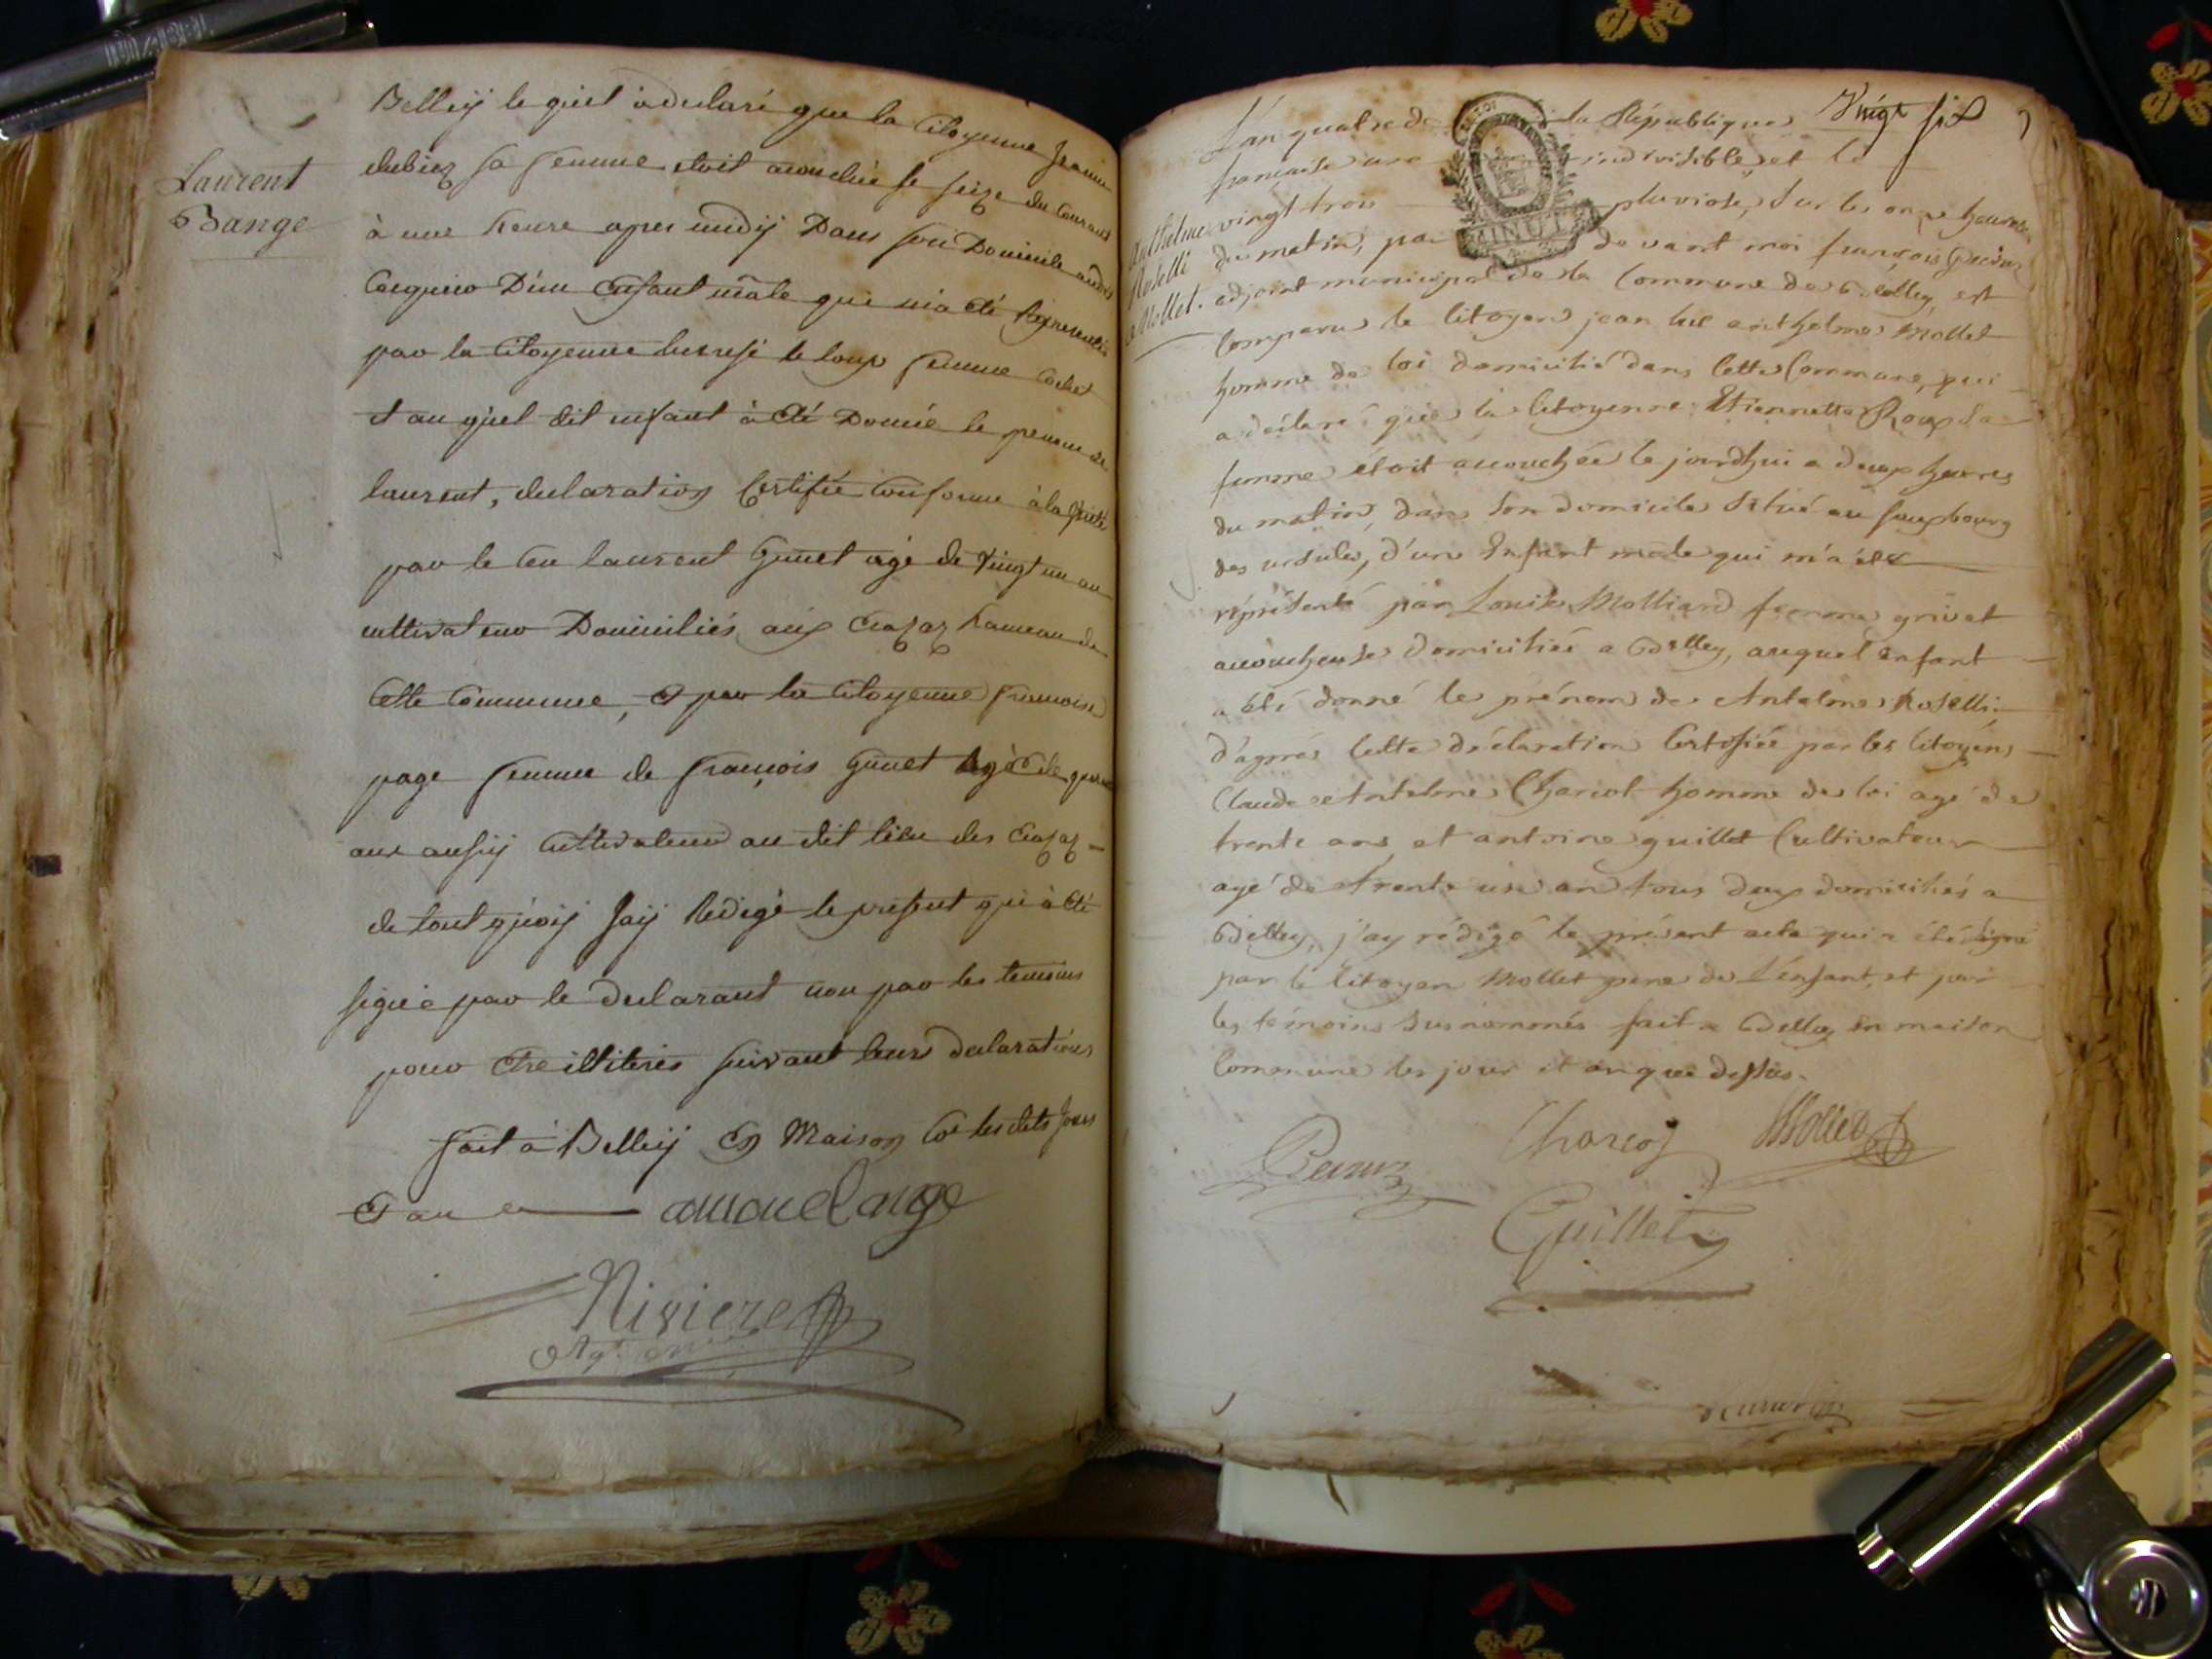 Laurent
Bange
Belleÿ le quel à declaré que la Citoyenne Jeanne
dubiez sa femme etoit acouchée le seize du Courant
à une heure apres midÿ Dans son Domicile
D'un Enfant mâle qui m'a été Representé
par la Citoyenne le loup femme
et au quel dit enfant à été Donné le prenom de
laurent, declaration Certifiée Conforme à la
par le Cen laurent Guinet agé de Vingt un an
cultivateur Domiciliés aux hameau de
Cette Commune, et par la Citoyenne francoise
page femme de françois Guinet agée de
ans aussÿ Cultivateur au dit lieu des
de tout quoÿ Jaÿ Redigé le present qui à été
signé par le declarant non par les temoins
pour Etre illiterés suivant leurs declarations
fait à Belleÿ En Maison Coe les dits Jours
Et an
Riviere
Vingt six
L'an quatre de la République
française une indivisible, et le
Anthelme
Roselli
Mollet.
vingt trois pluviose, sur les onze heures
MINUTE
du matin, par devant moi françois
adjoint municipal de la Commune de Belley, est
Comparu le Citoyen jean luc anthelme Mollet
homme de loi domicilié dans Cette Commune, qui
a déclaré que la Citoyenne Etiennette Roux sa
femme étoit accouchée le jourdhui a deux heures
du matin, dans son domicile situé au fauxbourg
des ursules, d'un Enfant male qui m'a été
réprésenté par Louise Molliard femme grivat
accoucheuse domiciliée a Belley, auquel enfant
a été donné le prénom de Antelme Roselli,
d'aprés Cette déclaration Certifiée par les Citoyens
Claude Antelme Charcot homme de loi agé de
trente ans et antoine guillet Cultivateur
agé de trente un an tous deux domiciliés a
Belley, j'ay rédigé le présent acte qui a été signé
par le Citoyen Mollet pere de L'enfant, et par
les témoins susnommés fait a Belley en maison
Commune les jour et an que dessus.
Charcot Mollet
Guillet